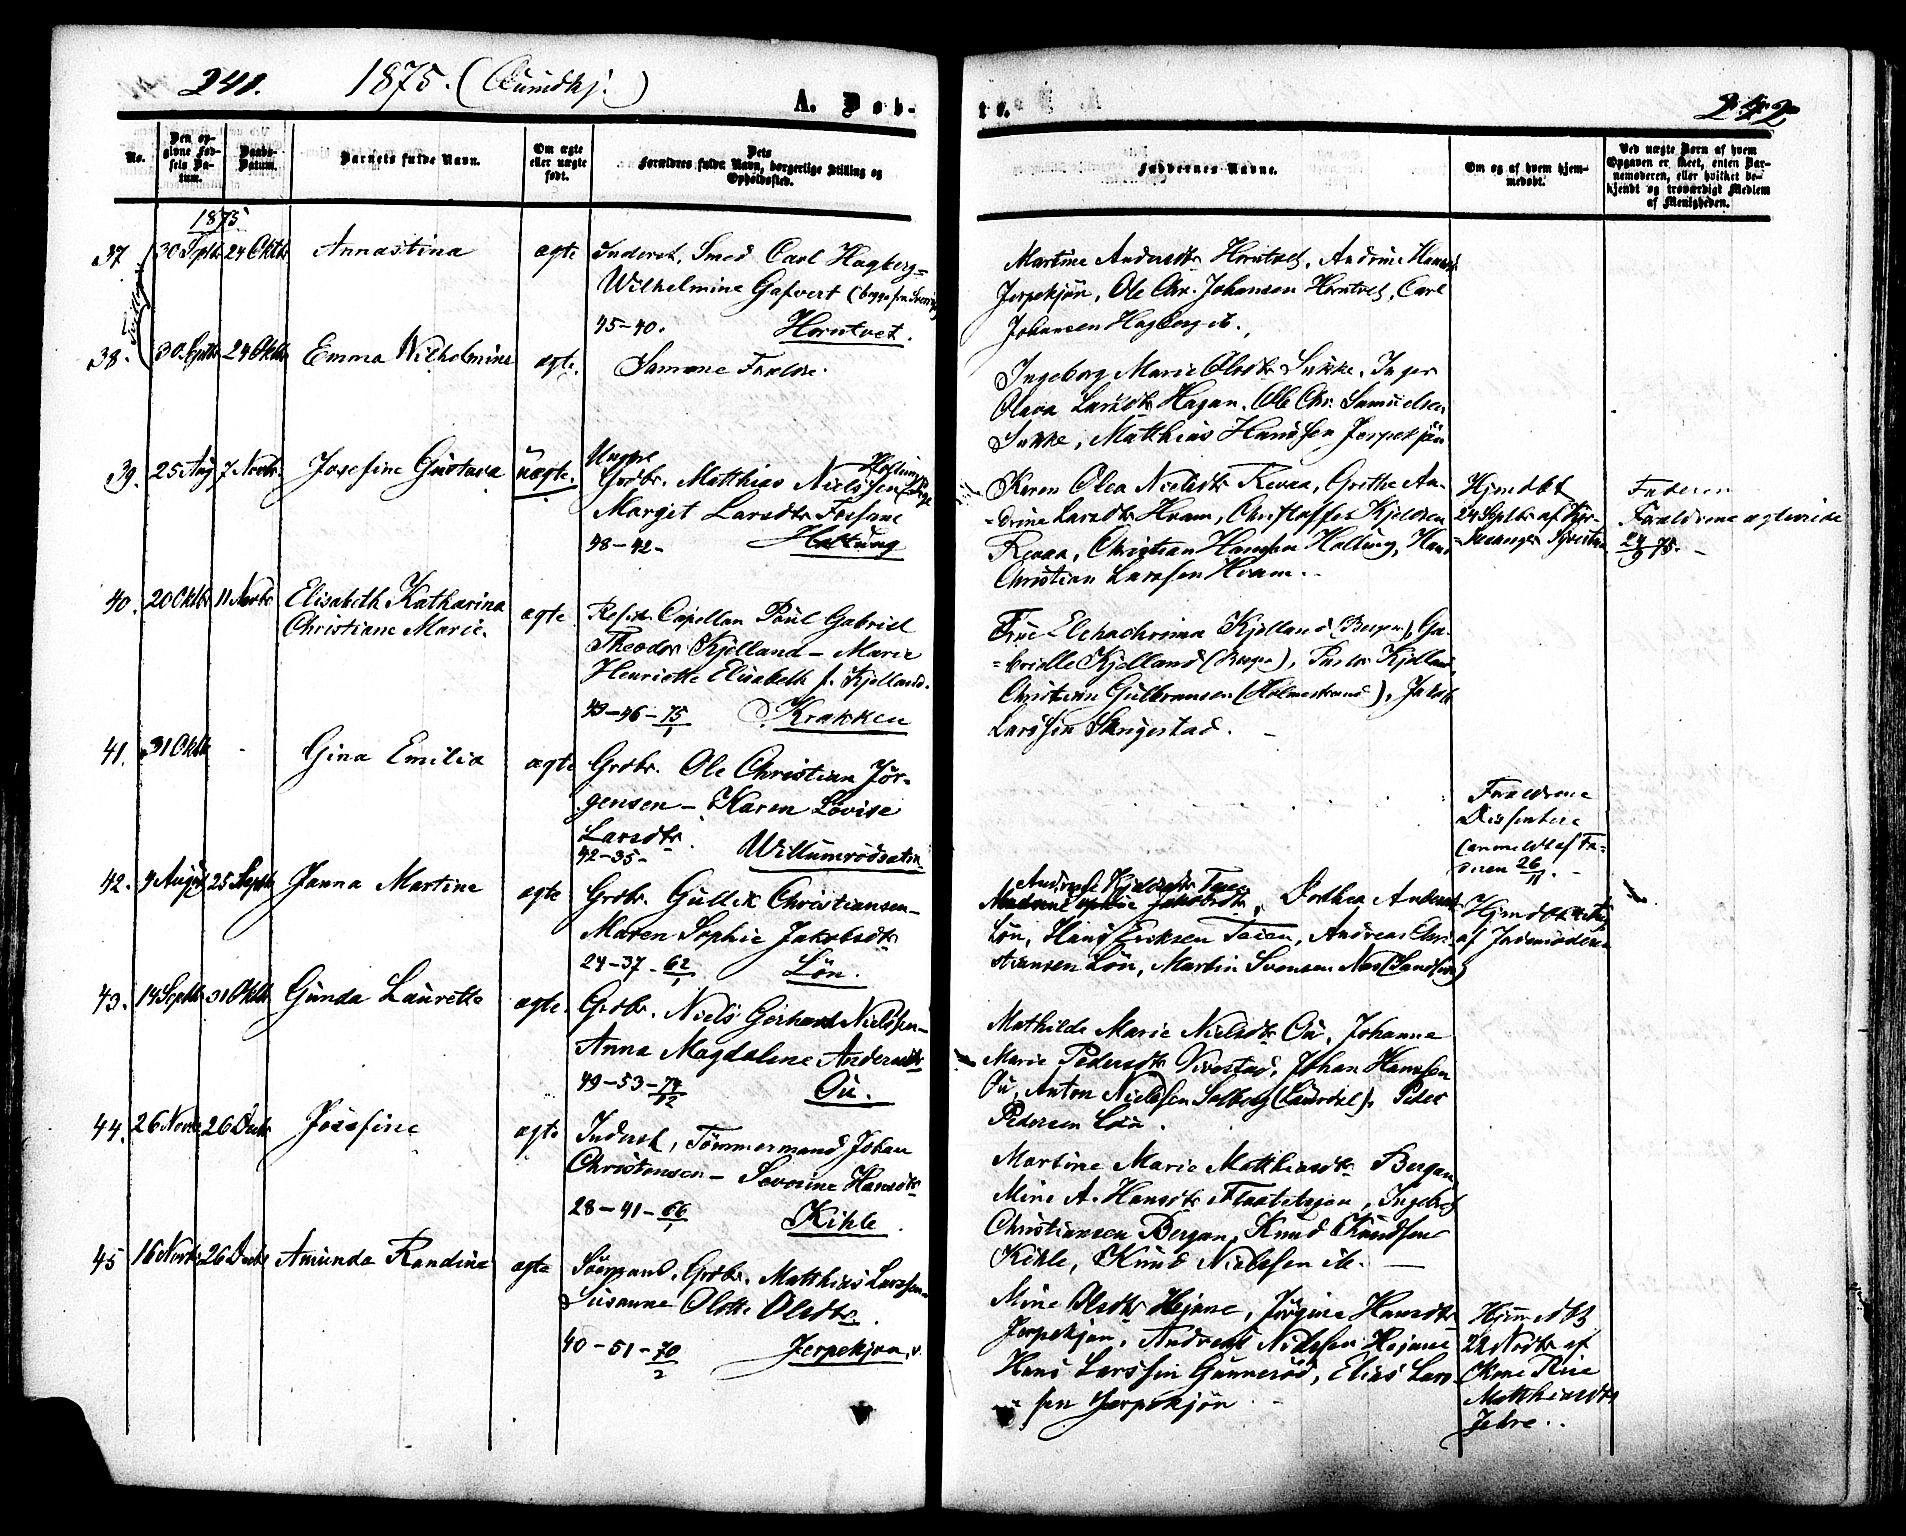 241. 1875. (Qvindkj.)
A. Døb-
te. 242
No.
Den opgivne Fødsels Datum.
Daabs-Datum.
Barnets fulde Navn.
Om ægte eller uægte født.
Dets Forældres fulde Navn, borgerlige Stilling og Opholdssted.
Faddernes Navne.
Om og af hvem hjemmedøbt.
Ved uægte Børn af hvem Opgaven er skeet, enten Barnemoderen, eller hvilket bekjendt og troværdigt Medlem af Menigheden.
1875
37 30 Septb 24 Oktbr Annastina ægte Inderst, Smed Carl Hagberg-
Wilhelmine Gafvert (begge fra Sverige)
45-40. Horntvet.
Martine Andersdtr Horntvet, Andrine Hansd
Jerpekjøn, Ole Chr. Johansen Horntvet, Carl
Johansen Hagberg ib.
Tvillinger
38. 30 Septb 24 Oktbr Emma Wilhelmine ægte. Samme Forældre.
Ingeborg Marie Olsdtr Sukke, Inger
Olava Larsdtr Hagan, Ole Chr. Samuelsen
Sukke, Matthias Hanssen Jerpekjøn
39. 25 Aug 7 Novbr. Josefine Gustava uægte. Ungkr
Grdbr. Matthias Nielssen
Marget Larsdtr Fossane
48-42- Holtung
Karen Olea Nielsdtr Revaa, Grethe An-
drine Larsdtr Hvam, Christoffer Kjeldsen
Revaa, Christian Hanssen Holtung, Hans
Christian Larssen Hvam.
Hjmdbt
24 Septbr af
Faderen
Forældrene agtevide
24/9 75.
40. 20 Oktbr 11 Novbr Elisabeth Katharina
Christiane Marie.
ægte Resid. Capellan Poul Gabriel
Theodor Kjelland - Marie
Henriette Elisabeth f. Kjelland.
49-46-75/1 Krakken
Frue Kjelland (Bergen), Ga-
brielle Kjelland (Bergen), Pastor Kjelland,
Christian Gulbransen (Holmestrand), Jakob
Larssen Skugestad.
41. 31 Oktb - Gina Emilia ægte Grdbr. Ole Christian Jør-
gensen - Karen Lovise
Larsdtr.
42-35- Willumrødsaten
Forældrene
Dissentere
(anmeldt af Fa-
deren 26/11.
42. 9 August 25 Septb Janna Martine ægte Grdbr. Gullik Christiansen-
Maren Sophie Jakobsdtr
24-37-62/1 Løn.
Andrine Kjeldsdtr Teien, Dorthea Andersd
Løn, Hans Eriksen Teien, Andreas Chri-
stiansen Løn, Martin Svensen Nes (Sandsver)
Hjmdbt
af Jordmoderen
43. 14 Septbr 31 Oktbr Gunda Laurette ægte. Grdbr. Niels Gerhard Nielssen-
Anna Magdalene Andersdtr
49-53-74/12 Ou.
Mathilde Marie Nielsdtr Ou, Johanne
Marie Pedersdtr Vivestad, Johan Hanssen
Ou, Anton Nielssen Solberg (Laurdal), Peder
Pedersen Løn.
44. 26 Novbr 26 Decbr Josefine ægte Inderst, Tømmermand Johan
Christensen - Severine Hansdtr
28-41-66/1 Kihle.
Martine Marie Matthiasdtr Bergan,
Mine A. Hansdtr Flaatetøjen, Ingebret
Christiansen Bergan, Knud Knudsen
Kihle, Knud Nielssen ib.
45 16 Novbr 26 Decbr Amunda Randine ægte Grdbr. Matthias Larssen-
Susanne Olette Olsdtr.
40-51-70/2 Jerpekjøn.
Mine Olsdtr Hejane, Jørgine Hansdtr
Jerpekjøn, Andreas Nilssen Hejane
Hans Larssen Gunnerød, Elias Lars-
sen Jerpekjøn
Hjmmedbt
22 Novbr af
Matthiasdtr